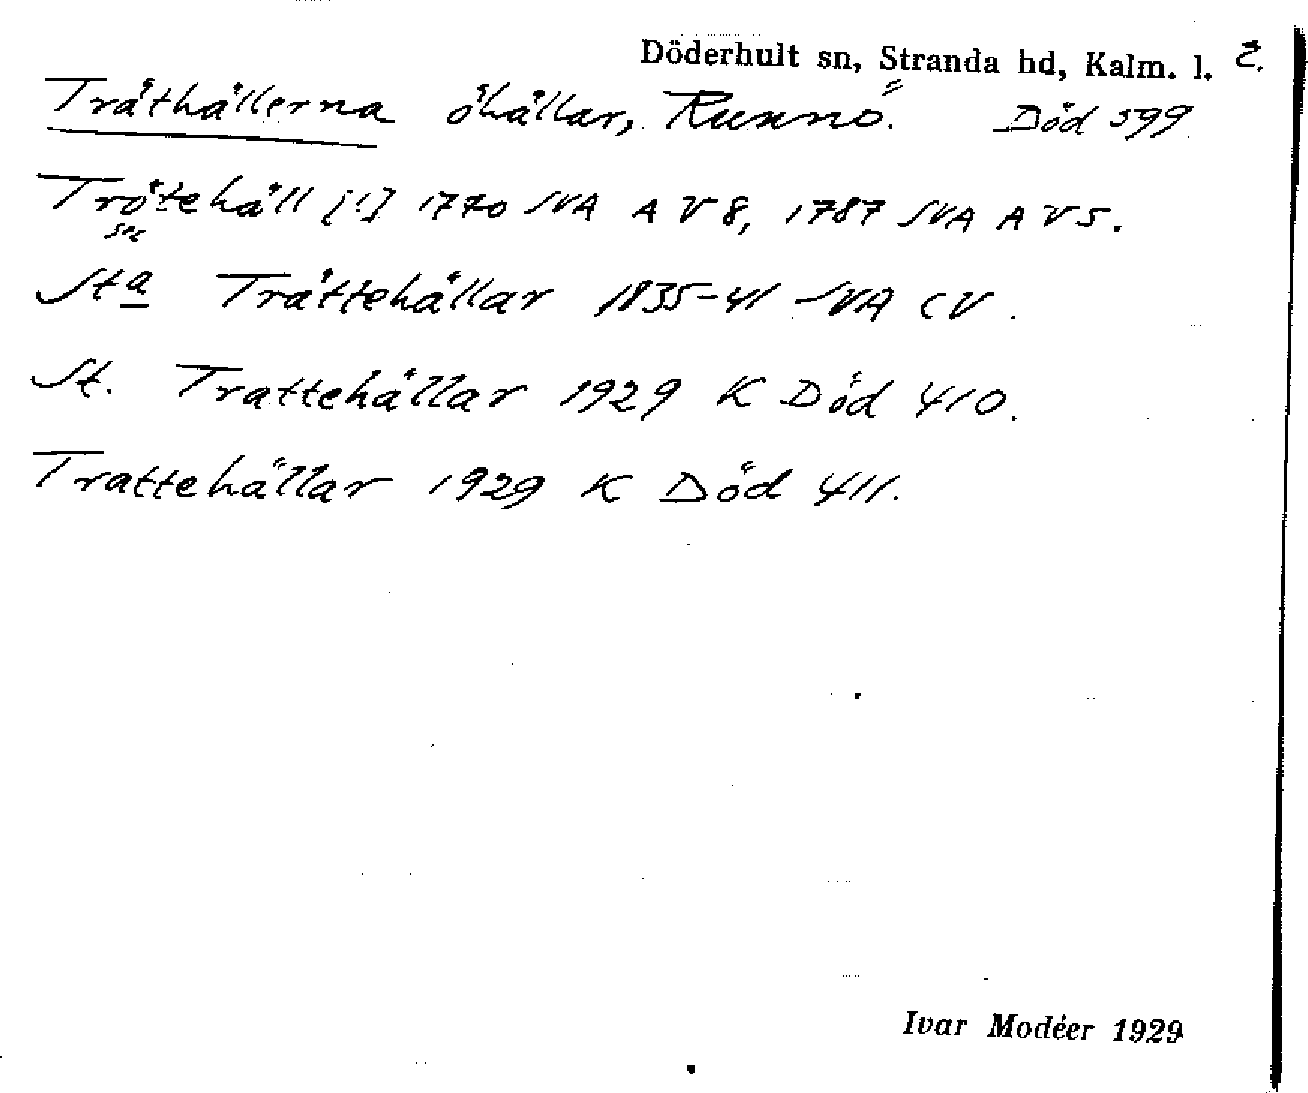 Döderhult sn, Stranda hd, Kalm. l. 2.
Tråthällerna öhällar, Runnö. Död 599
Trötehäll [!] 1770 SVA A V 8, 1787 SVA A V 5.
sic
Sta Tråttehällar 1835-41 SVA CV.
St. Trattehällar 1929 K Död 410.
Trattehällar 1929 K Död 411.
Ivar Modéer 1929